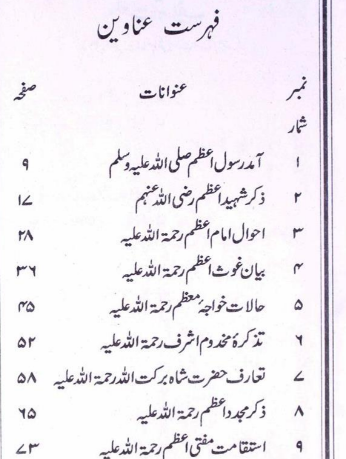 فہرست عناوین
نمبر شمار عنوانات صفحہ
۱ آمد رسول اعظم صلی اللہ علیہ وسلم ۹
۲ ذکر شہید اعظم رضی اللہ عنہم ۱۷
۳ احوال امام اعظم رحمۃ اللہ علیہ ۲۸
۴ بیان غوث اعظم رحمۃ اللہ علیہ ۳۶
۵ حالات خواجۂ معظم رحمۃ اللہ علیہ ۴۵
۶ تذکرۂ مخدوم اشرف رحمۃ اللہ علیہ ۵۲
۷ تعارف حضرت شاہ برکت اللہ رحمۃ اللہ علیہ ۵۸
۸ ذکر مجدد اعظم رحمۃ اللہ علیہ ۶۵
۹ استقامت مفتی اعظم رحمۃ اللہ علیہ ۷۳